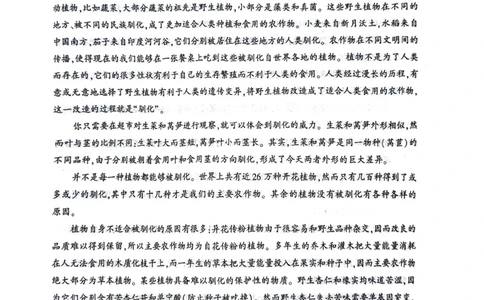 动植物,比如蔬菜、大部分蔬菜的祖先是野生植物,小部分是藻类和真菌。这些野生植物在不同的
地方、被不同的民族驯化,成了更加适合人类种植和食用的农作物。小麦来自新月沃土,水稻来自
中国南方,茄子来自印度河河谷,它们分别被居住在这些地方的人类驯化。农作物在不同文明间的
传播,使得现在的我们能够在一张餐桌上吃到这些被驯化自世界各地的植物。植物不是为了人类
而存在的,它们的很多性状有利于自己的生存繁殖而不利于人类的食用。人类经过漫长的历程,有
意或无意地选择了野生植物有利于人类的遗传变异,将野生植物改造成了适合人类食用的农作物,
这一改造的过程就是“驯化”。
你只需要在超市对生菜和莴笋进行观察,就可以体会到驯化的威力。生菜和莴笋外形相似,然
而叶与茎的比例不同:生菜叶大而茎短,莴笋叶小而茎长。其实,生菜和莴笋是同一物种(莴苣)的
不同品种,由于分别被朝着食用叶和食用茎的方向驯化,形成了今天两者外形的巨大差异。
并不是每一种植物都能够被驯化。世界上共有近26万种开花植物,然而只有几百种得到了或
多或少的驯化,其中只有十几种才是我们的主要农作物。其余的植物没有被驯化有各种各样的
原因。
植物自身不适合被驯化的原因有很多:异花传粉植物由于很容易和野生品种杂交,因而改良的
品质难以得到保留,所以主要农作物均为自花传粉的植物。多年生的乔木和灌木把大量能量消耗
在人无法食用的木质化枝干上,而一年生的草本把大量能量投入在果实和种子中,因而主要农作物
绝大部分为草本植物。某些植物具备难以驯化的保护性的物质。野生杏仁和橡实均味道苦涩,因
为它们分别含有苦杏仁苷和单宁酸(防止种子被吃掉)。然而野生杏仁失去苦味需要单基因变异,